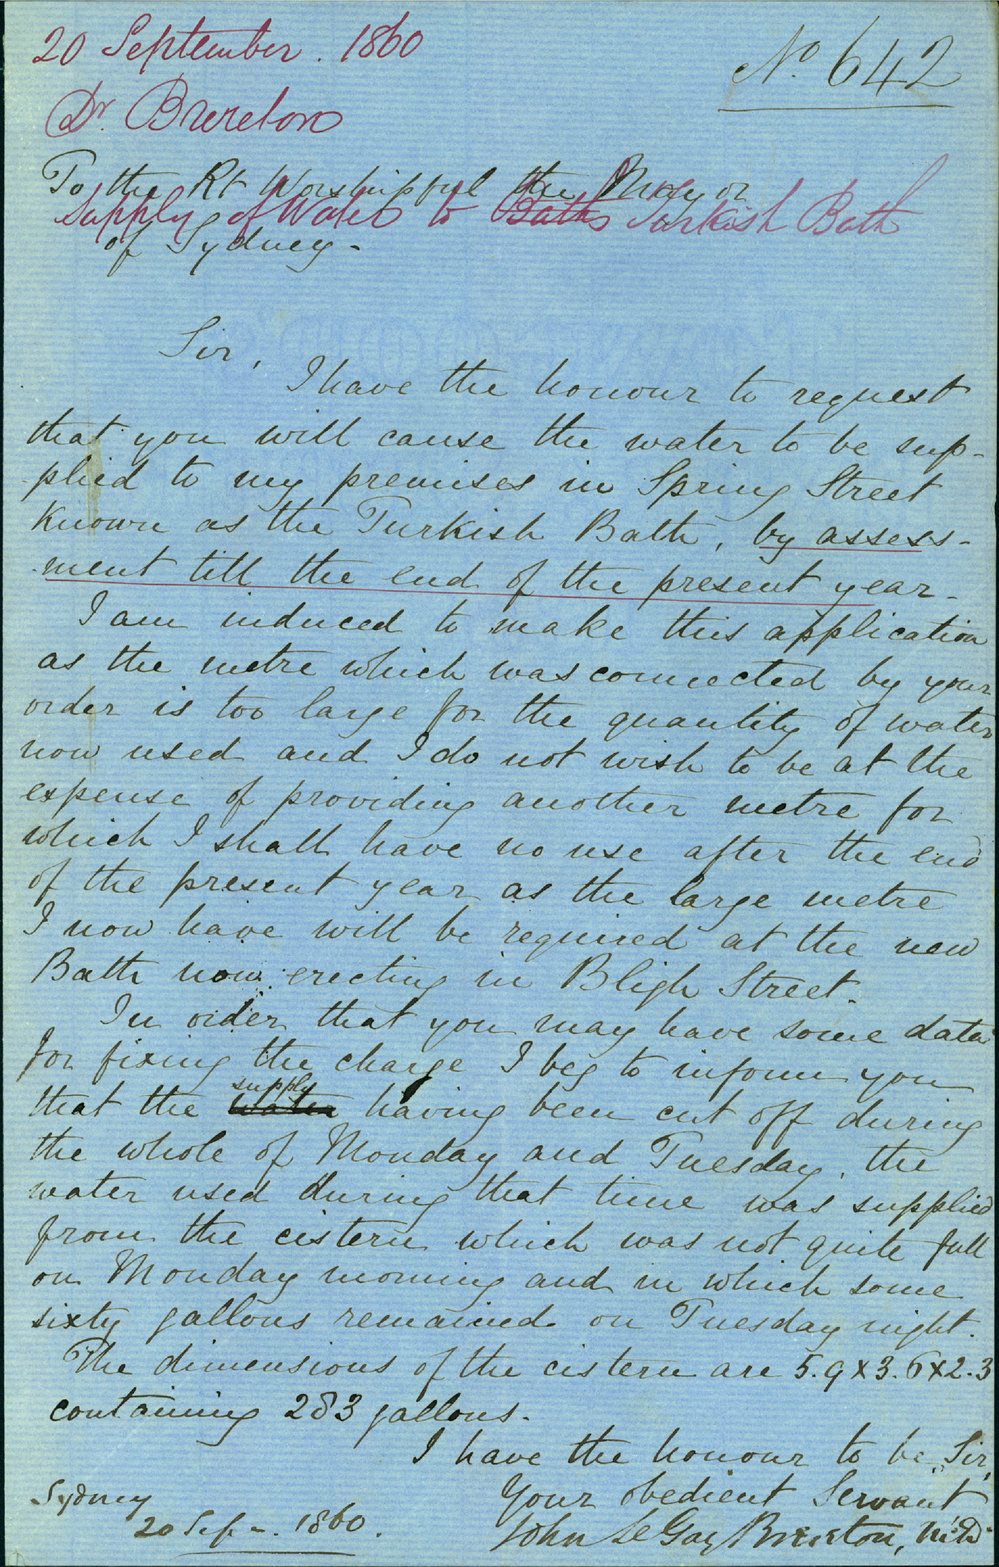 20 September. 1860
No. 642
Dr. Brereton
To the Rt Worshipful the Mayor
Supply of Water to Baths Turkish Bath
of Sydney -
Sir,
I have the honour to request
that you will cause the water to be sup-
plied to my premises in Spring Street
known as the Turkish Bath, by assess-
ment till the end of the present year.
I am induced to make this application
as the metre which was connected by your
order is too large for the quantity of water
now used and I do not wish to be at the
expense of providing another metre for
which I shall have no use after the end
of the present year as the large metre
I now have will be required at the new
Bath now erecting in Bligh Street.
In order that you may have some data
for fixing the charge I beg to inform you
supply
that the water having been cut off during
the whole of Monday and Tuesday, the
water used during that time was supplied
from the cistern which was not quite full
on Monday morning and in which some
sixty gallons remained on Tuesday night.
The dimensions of the cistern are 5.9 x 3.6 x 2.3
containing 283 gallons.
I have the honour to be, Sir,
Your obedient Servant
John Le Gay Brereton, M.D.
Sydney
20 Sep -. 1860.